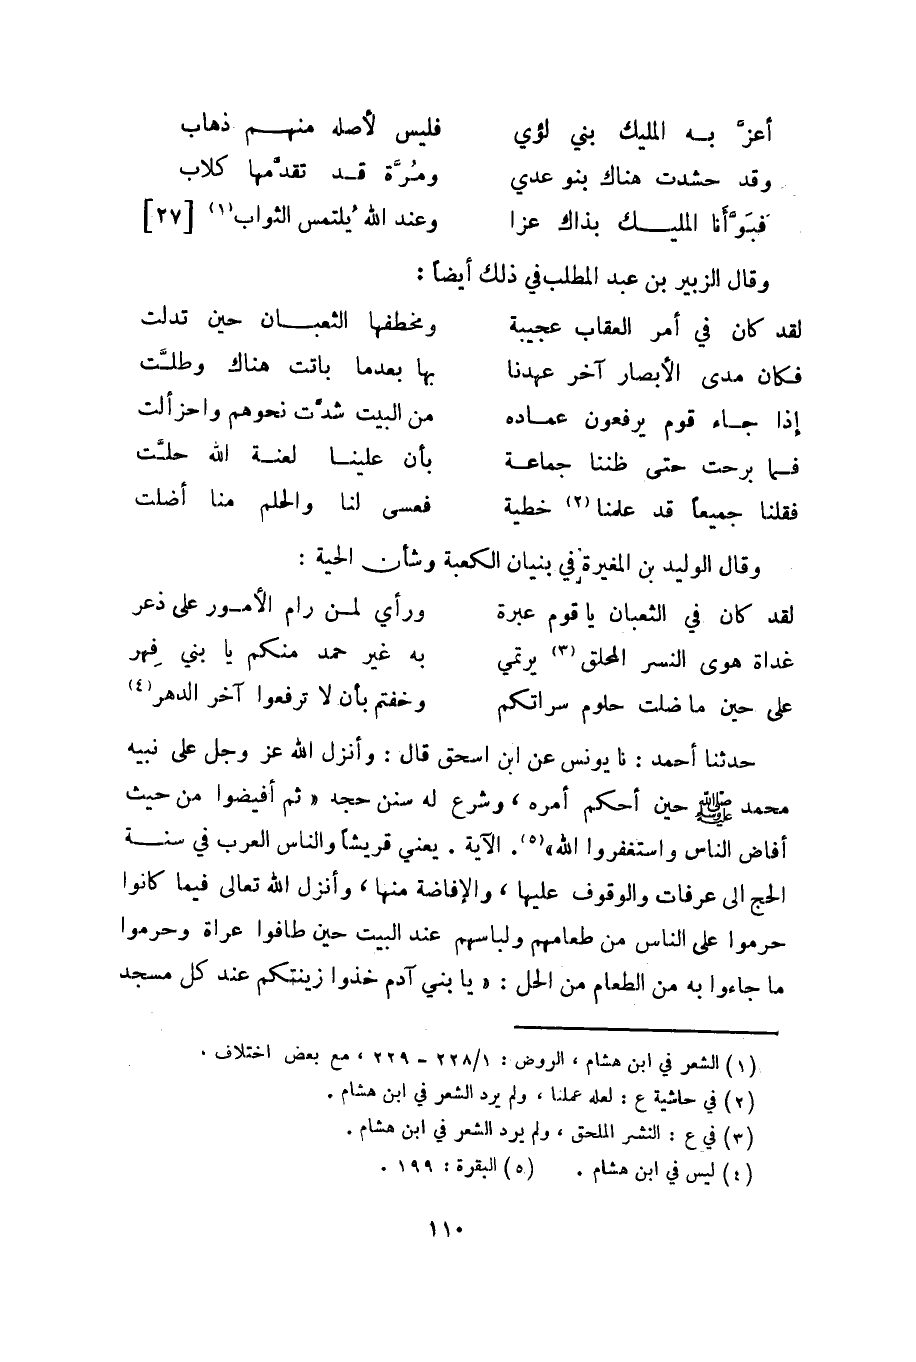 أعزَّ بــه المليك بني لؤي فليس لأصله منهـــم ذهاب
وقد حشدت هناك بنو عدي ومُرَّة قــد تقدَّمها كلاب
فبَوَّأنا المليـــك بذاك عزا وعند الله يُلتمس الثواب(١) [٢٧]
وقال الزبير بن عبد المطلب في ذلك أيضاً :
لقد كان في أمر العقاب عجيبة ومخطفها الثعبـــان حين تدلت
فكان مدى الأبصار آخر عهدنا بها بعدما باتت هناك وطلَّت
إذا جــاء قوم يرفعون عمــاده من البيت شدَّت نحوهم واحزألت
فــما برحت حتى ظننا جماعــة بأن علينــا لعنــة الله حلَّت
فقلنا جميعاً قد علمنا(٢) خطية فعسى لنا والحلم منا أضلت
وقال الوليد بن المغيرة في بنيان الكعبة وشأن الحية :
لقد كان في الثعبان يا قوم عبرة ورأي لمن رام الأمــور على ذعر
غداة هوى النسر المحلق(٣) يرتمي به غير حمد منكم يا بني فِهر
على حين ما ضلت حلوم سراتكم وخفتم بأن لا ترفعوا آخر الدهر(٤)
حدثنا أحمد : نا يونس عن ابن اسحق قال : وأنزل الله عز وجل على نبيه
محمد ﷺ حين أحكم أمره ، وشرع له سنن حجه « ثم أفيضوا من حيث
أفاض الناس واستغفروا الله»(٥). الآية . يعني قريشاً والناس العرب في سنــة
الحج الى عرفات والوقوف عليها ، والإفاضة منها ، وأنزل الله تعالى فيما كانوا
حرموا على الناس من طعامهم ولباسهم عند البيت حين طافوا عراة وحرموا
ما جاءوا به من الطعام من الحل : « يا بني آدم خذوا زينتكم عند كل مسجد
(١) الشعر في ابن هشام ، الروض : ١/٢٢٨ – ٢٢٩ ، مع بعض اختلاف .
(٢) في حاشية ع : لعله عملنا ، ولم يرد الشعر في ابن هشام .
(٣) في ع : النشر الملحق ، ولم يرد الشعر في ابن هشام .
(٤) ليس في ابن هشام . (٥) البقرة : ١٩٩ .
١١٠